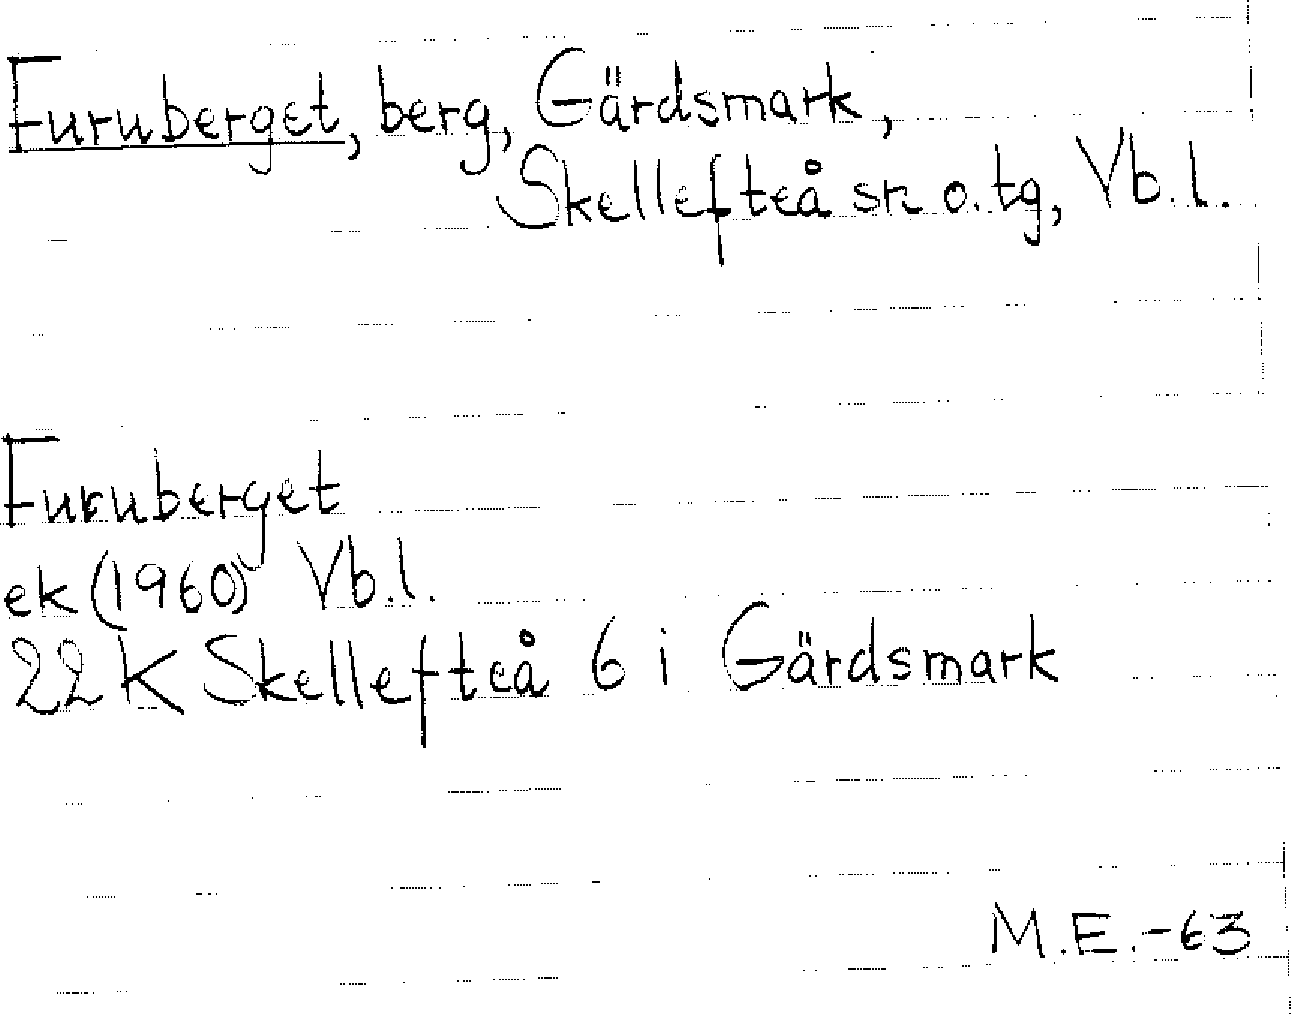 Furuberget, berg, Gärdsmark,
Skellefteå sn o. tg, Vb.l.
Furuberget
ek (1960) Vb.l.
22 K Skellefteå 6 i Gärdsmark
M.E.-63